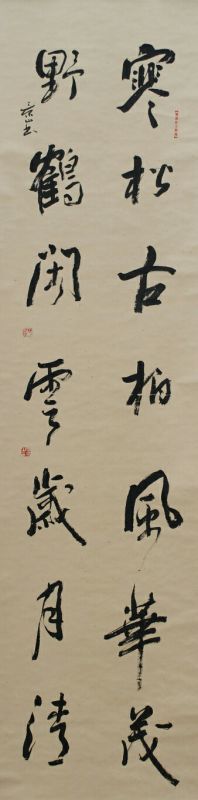 寒松古柏風華茂
野鶴閑雲歲月清